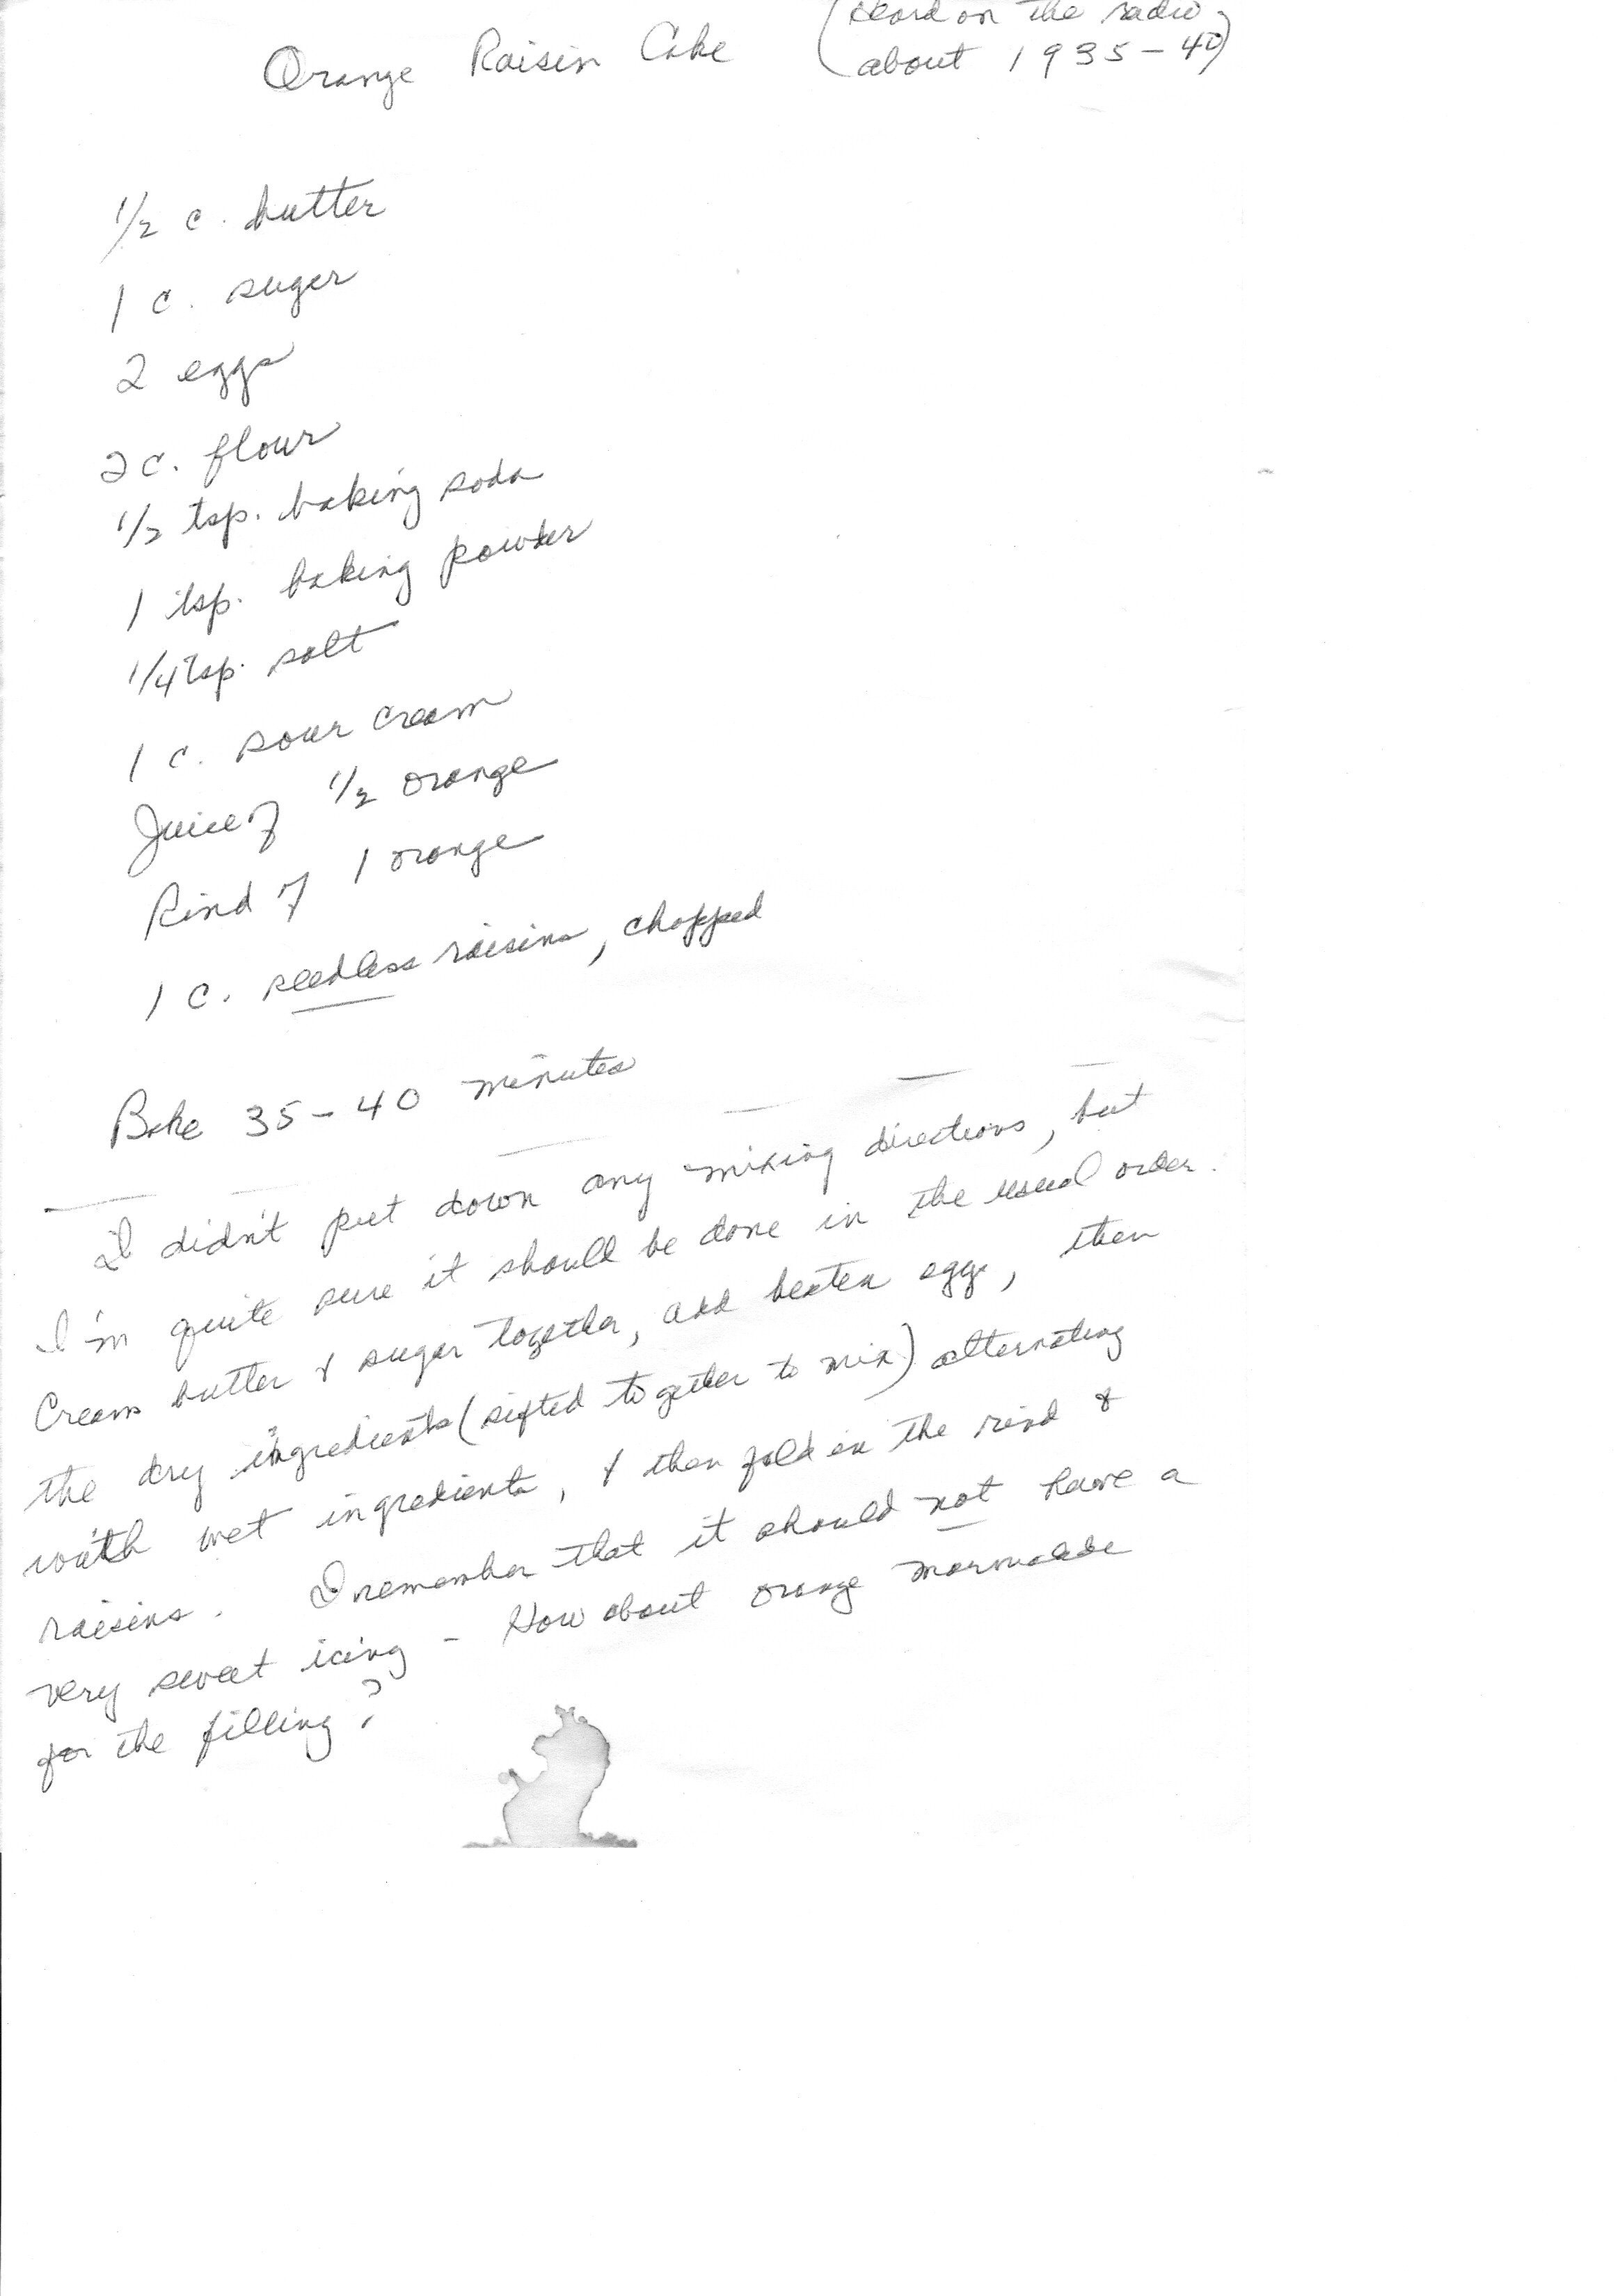 Orange Raisin Cake (Heard on the radio -
about 1935-40)
1/2 c. butter
1 c. suger
2 eggs
2 c. flour
1/2 tsp. baking soda
1 tsp. baking powder
1/4 tsp. salt
1 c. sour cream
Juice of 1/2 orange
Rind of 1 orange
1 c. seedless raisins, chopped
Bake 35-40 minutes
I didn't put down any mixing directions, but
I'm quite sure it should be done in the usual order.
Cream butter & sugar together, add beaten eggs, then
the dry ingredients (sifted together to mix) alternating
with wet ingredients, & then fold in the rind &
raisins. I remember that it should not have a
very sweet icing - How about orange marmalade
for the filling?